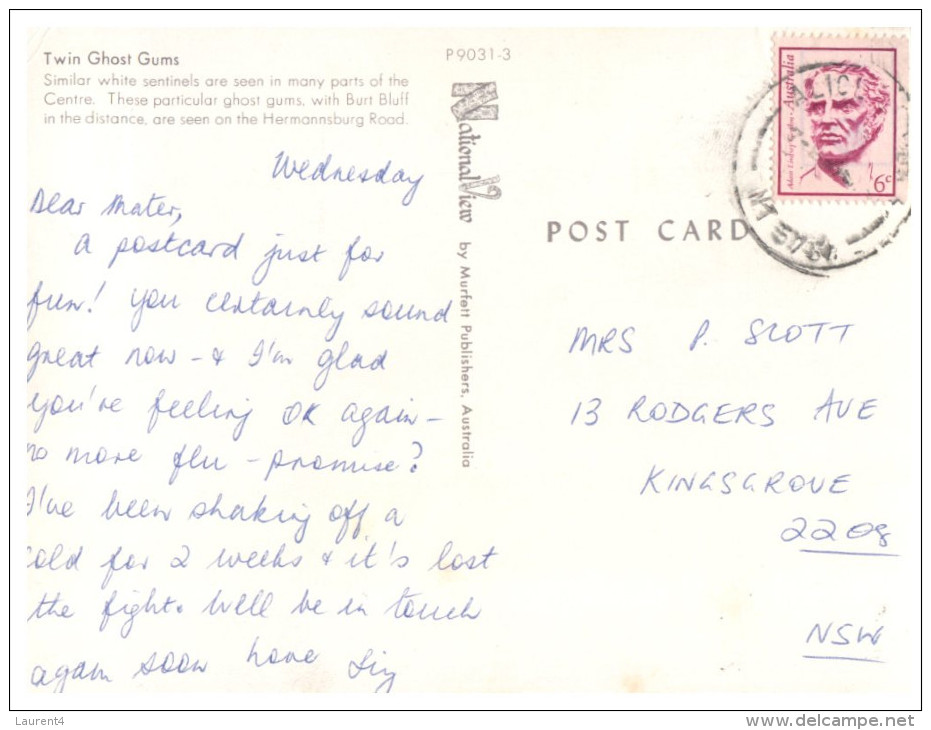 Twin Ghost Gums
Similar white sentinels are seen in many parts of the
Centre. These particular ghost gums, with Burt Bluff
in the distance, are seen on the Hermannsburg Road.
P9031-3
Wednesday
Dear Mater,
a postcard just for
fun! You certainly sound
great now - & I'm glad
you're feeling OK again -
no more flu - promise?
I've been shaking off a
cold for 2 weeks & it's lost
the fight. Will be in touch
again soon love Liz
National View by Murfett Publishers, Australia
POST CARD
Australia
6c
ALICE
NT 5750
MRS P. SCOTT
13 RODGERS AVE
KINGSGROVE
2208
NSW
Laurent4
www.delcampe.net